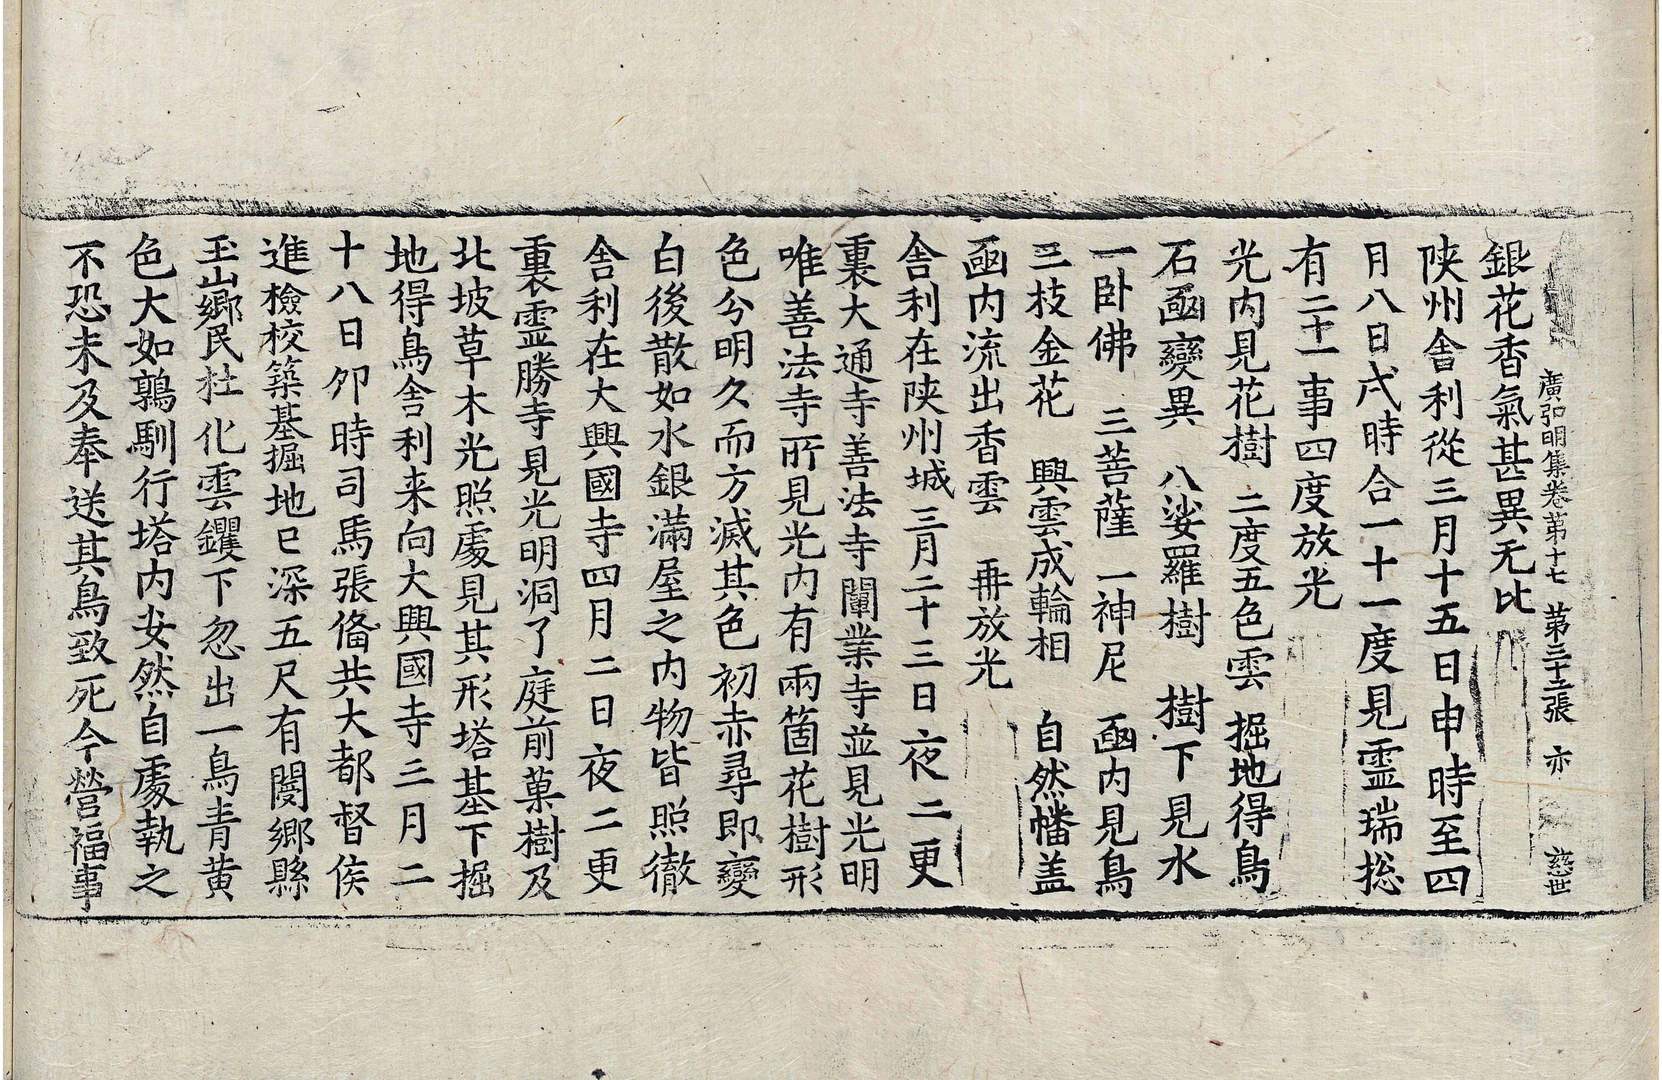 廣弘明集卷第十七　第三十五張　亦　慈世
銀花香氣甚異无比
陝州舍利從三月十五日申時至四
月八日戌時合一十一度見靈瑞揔
有二十一事四度放光
光內見花樹　二度五色雲　掘地得鳥
石函變異　八娑羅樹　樹下見水
一卧佛　三菩薩　一神尼　函內見鳥
三枝金花　興雲成輪相　自然幡盖
函內流出香雲　再放光
舍利在陝州城三月二十三日夜二更
裏大通寺善法寺闡業寺並見光明
唯善法寺所見光內有兩箇花樹形
色分明久而方滅其色初赤尋即變
白後散如水銀滿屋之內物皆照徹
舍利在大興國寺四月二日夜二更
裏靈勝寺見光明洞了庭前菓樹及
北坡草木光照處見其形塔基下掘
地得鳥舍利来向大興國寺三月二
十八日夘時司馬張俻共大都督侯
進檢校築基掘地已深五尺有閿鄉縣
玉山鄉民杜化雲钁下忽出一鳥青黄
色大如鶉馴行塔內安然自處執之
不恐未及奉送其鳥致死今營福事